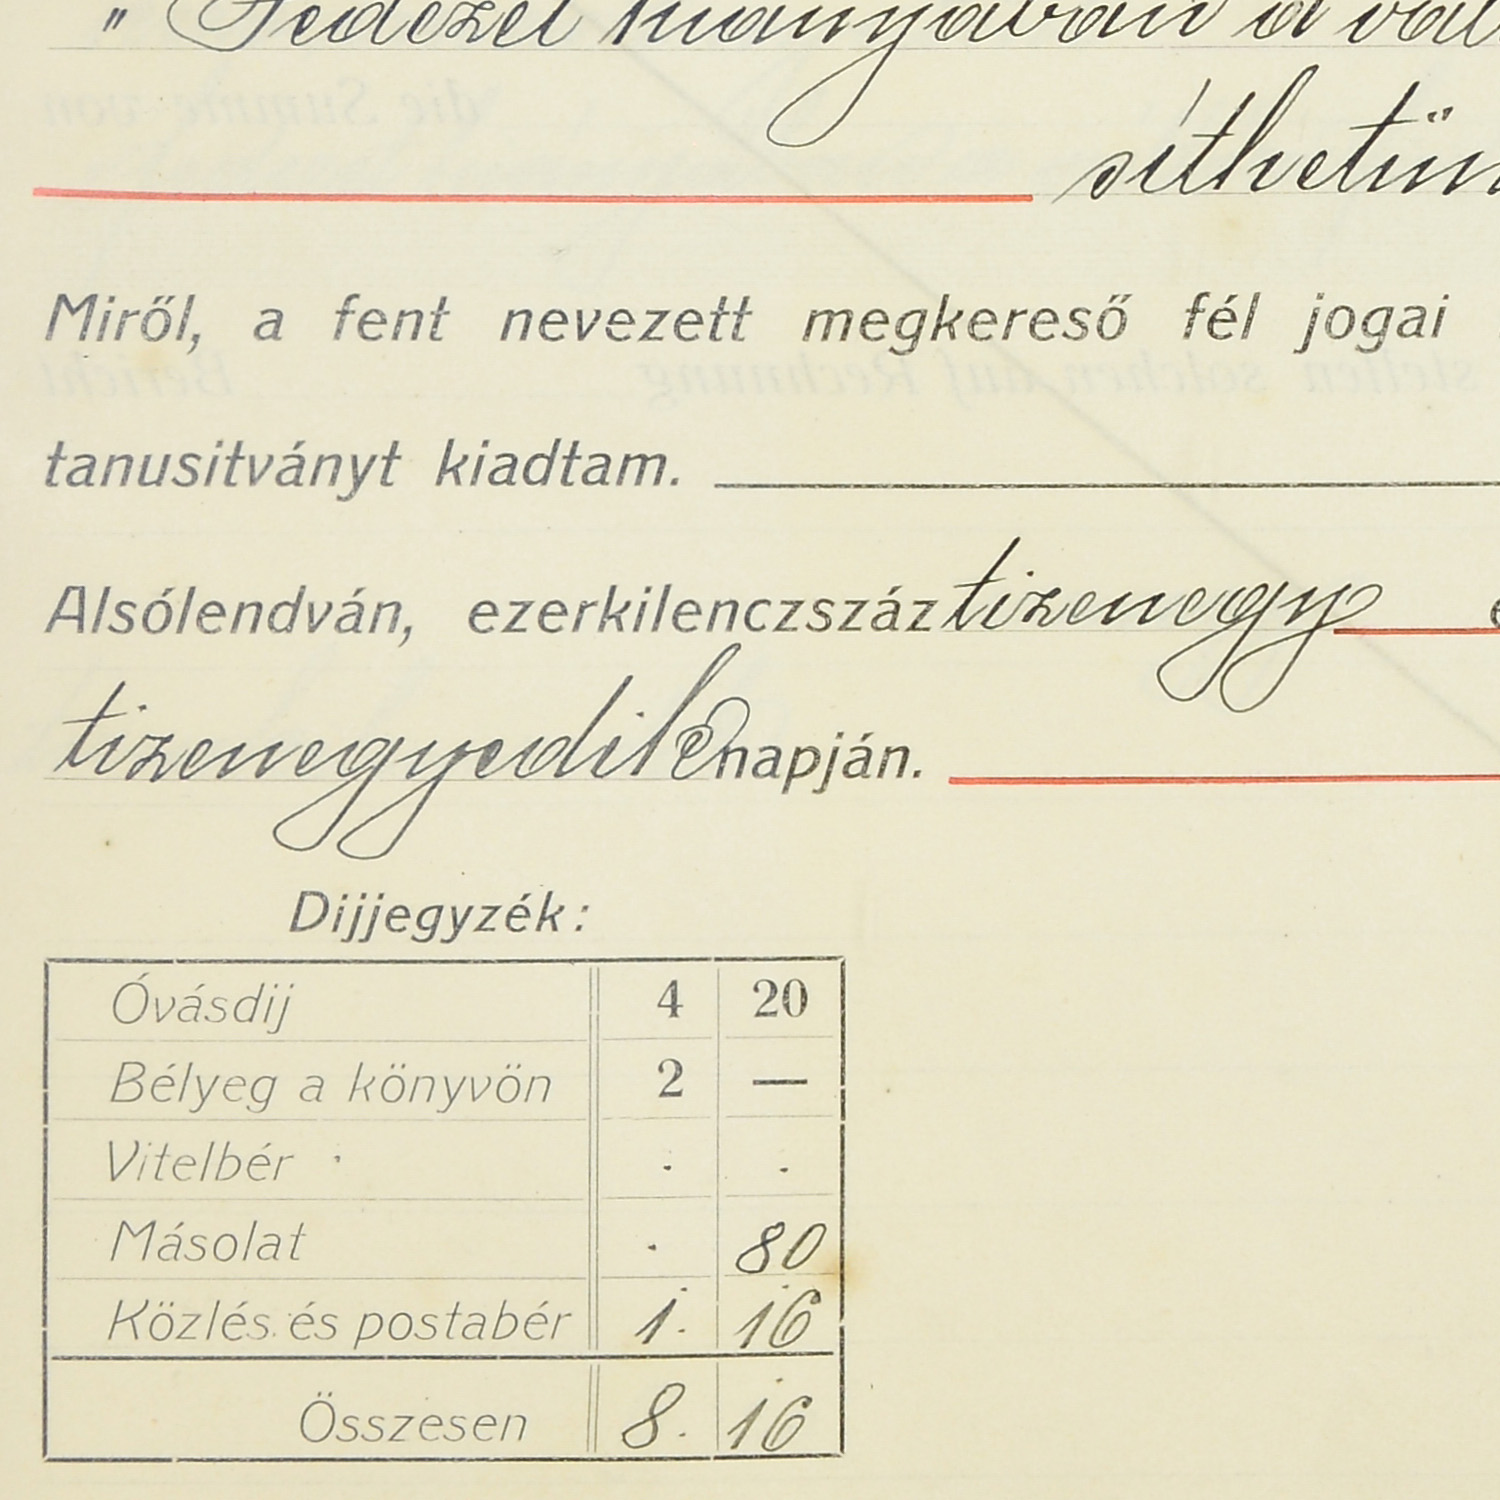 " Fedezet hiányában a vál
síthetün
Miről, a fent nevezett megkereső fél jogai
tanusitványt kiadtam.
Alsólendván, ezerkilenczszáztizenegy
tizenegyedik napján.
Dijjegyzék:
Óvásdij 4 20
Bélyeg a könyvön 2 —
Vitelbér . .
Másolat . 80
Közlés és postabér 1. 16
Összesen 8. 16